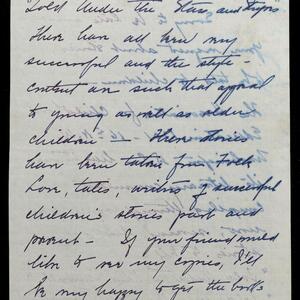 "Told Under the Stars and Stripes"
These have all been very
successful and the style -
content are such that appeal
to young as well as older
children — These stories
have been taken from Folk
Lore, tales, writers of successful
children's stories past and
present - If your friend would
like to see my copies, I'll
be very happy to get the books